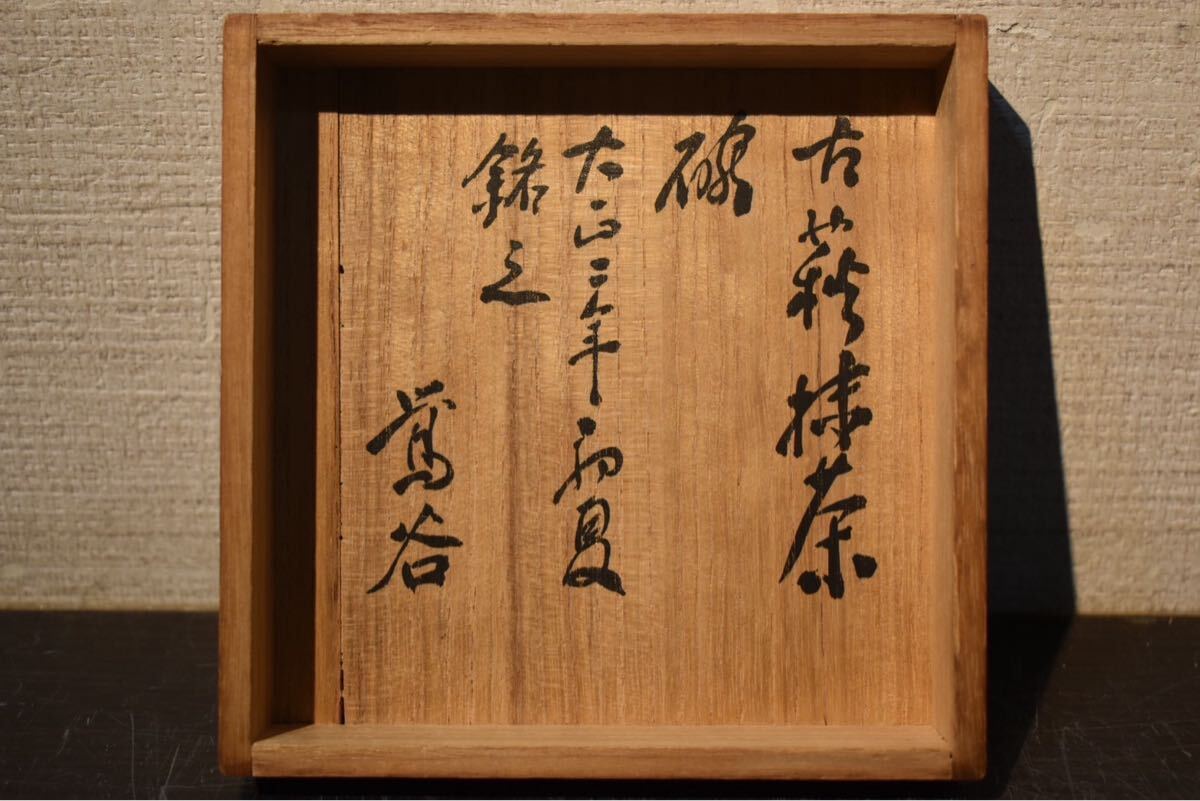 古萩抹茶
碗
大正二年初夏
銘之
鳶谷